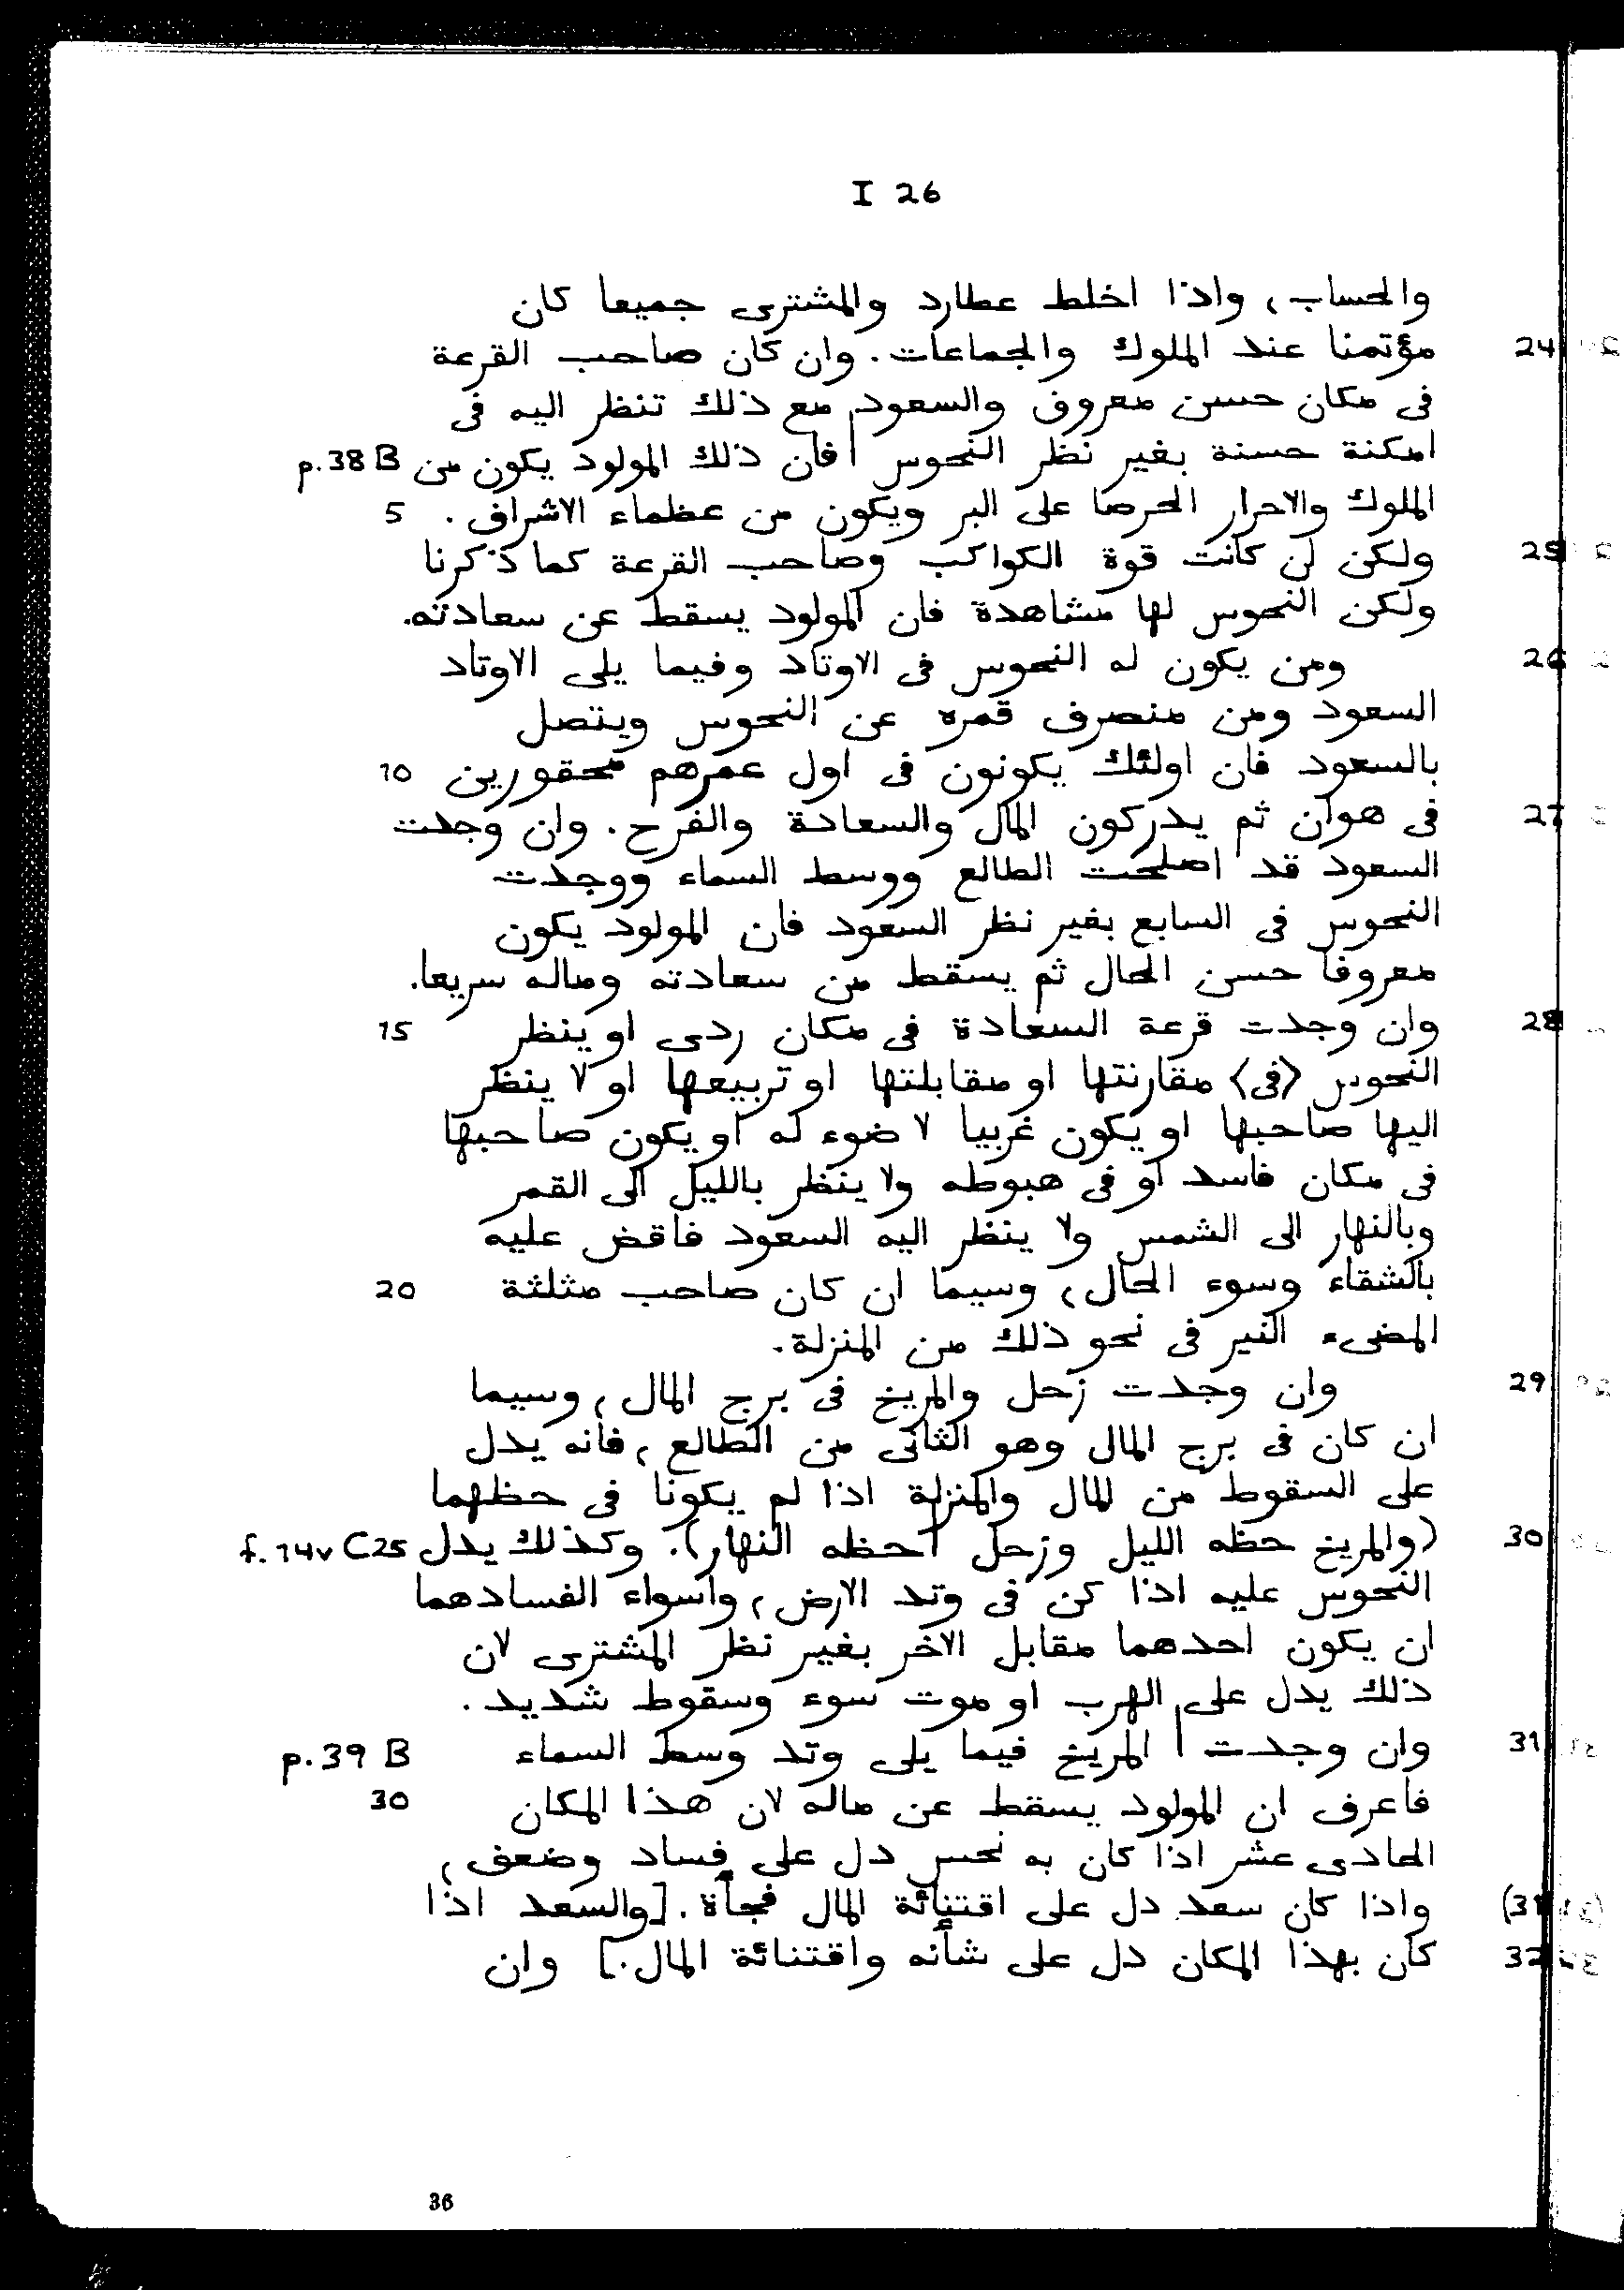 I 26
والحساب، واذا اخلط عطارد والمشترى جميعا كان
24 مؤتمنا عند الملوك والجماعات. وان كان صاحب القرعة
فى مكان حسن معروف والسعود مع ذلك تنظر اليه فى
امكنة حسنة بغير نظر النحوس | فان ذلك المولود يكون من p.38 B
الملوك والاحرار الحرصا على البر ويكون من عظماء الاشراف. 5
25 ولكن لن كانت قوة الكواكب وصاحب القرعة كما ذكرنا
ولكن النحوس لها مشاهدة فان المولود يسقط عن سعادته.
26 ومن يكون له النحوس فى الاوتاد وفيما يلى الاوتاد
السعود ومن منصرف قمره عن النحوس ويتصل
بالسعود فان اولئك يكونون فى اول عمرهم محقورين 10
27 فى هوان ثم يدركون المال والسعادة والفرح. وان وجدت
السعود قد اصلحت الطالع ووسط السماء ووجدت
النحوس فى السابع بغير نظر السعود فان المولود يكون
معروفا حسن الحال ثم يسقط من سعادته وماله سريعا.
28 وان وجدت قرعة السعادة فى مكان ردى او ينظر 15
النحوس <فى> مقارنتها او مقابلتها او تربيعها او لا ينظر
اليها صاحبها او يكون غربيا لا ضوء له او يكون صاحبها
فى مكان فاسد او فى هبوطه ولا ينظر بالليل الى القمر
وبالنهار الى الشمس ولا ينظر اليه السعود فاقض عليه
بالشقاء وسوء الحال، وسيما ان كان صاحب مثلثة 20
المضىء النير فى نحو ذلك من المنزلة.
29 وان وجدت زحل والمريخ فى برج المال، وسيما
ان كان فى برج المال وهو الثانى من الطالع، فانه يدل
على السقوط من المال والمنزلة اذا لم يكونا فى حظهما
30 (والمريخ حظه الليل وزحل | حظه النهار). وكذلك يدل f.14v C 25
النحوس عليه اذا كن فى وتد الارض، واسواء الفسادهما
ان يكون احدهما مقابل الاخر بغير نظر المشترى لان
ذلك يدل على الهرب او موت سوء وسقوط شديد.
31 وان وجدت | المريخ فيما يلى وتد وسط السماء p.39 B
فاعرف ان المولود يسقط عن ماله لان هذا المكان 30
الحادى عشر اذا كان به نحس دل على فساد وضعف،
(31) واذا كان سعد دل على اقتنائة المال فجأة. [والسعد اذا
32 كان بهذا المكان دل على شأنه واقتنائة المال.] وان
36